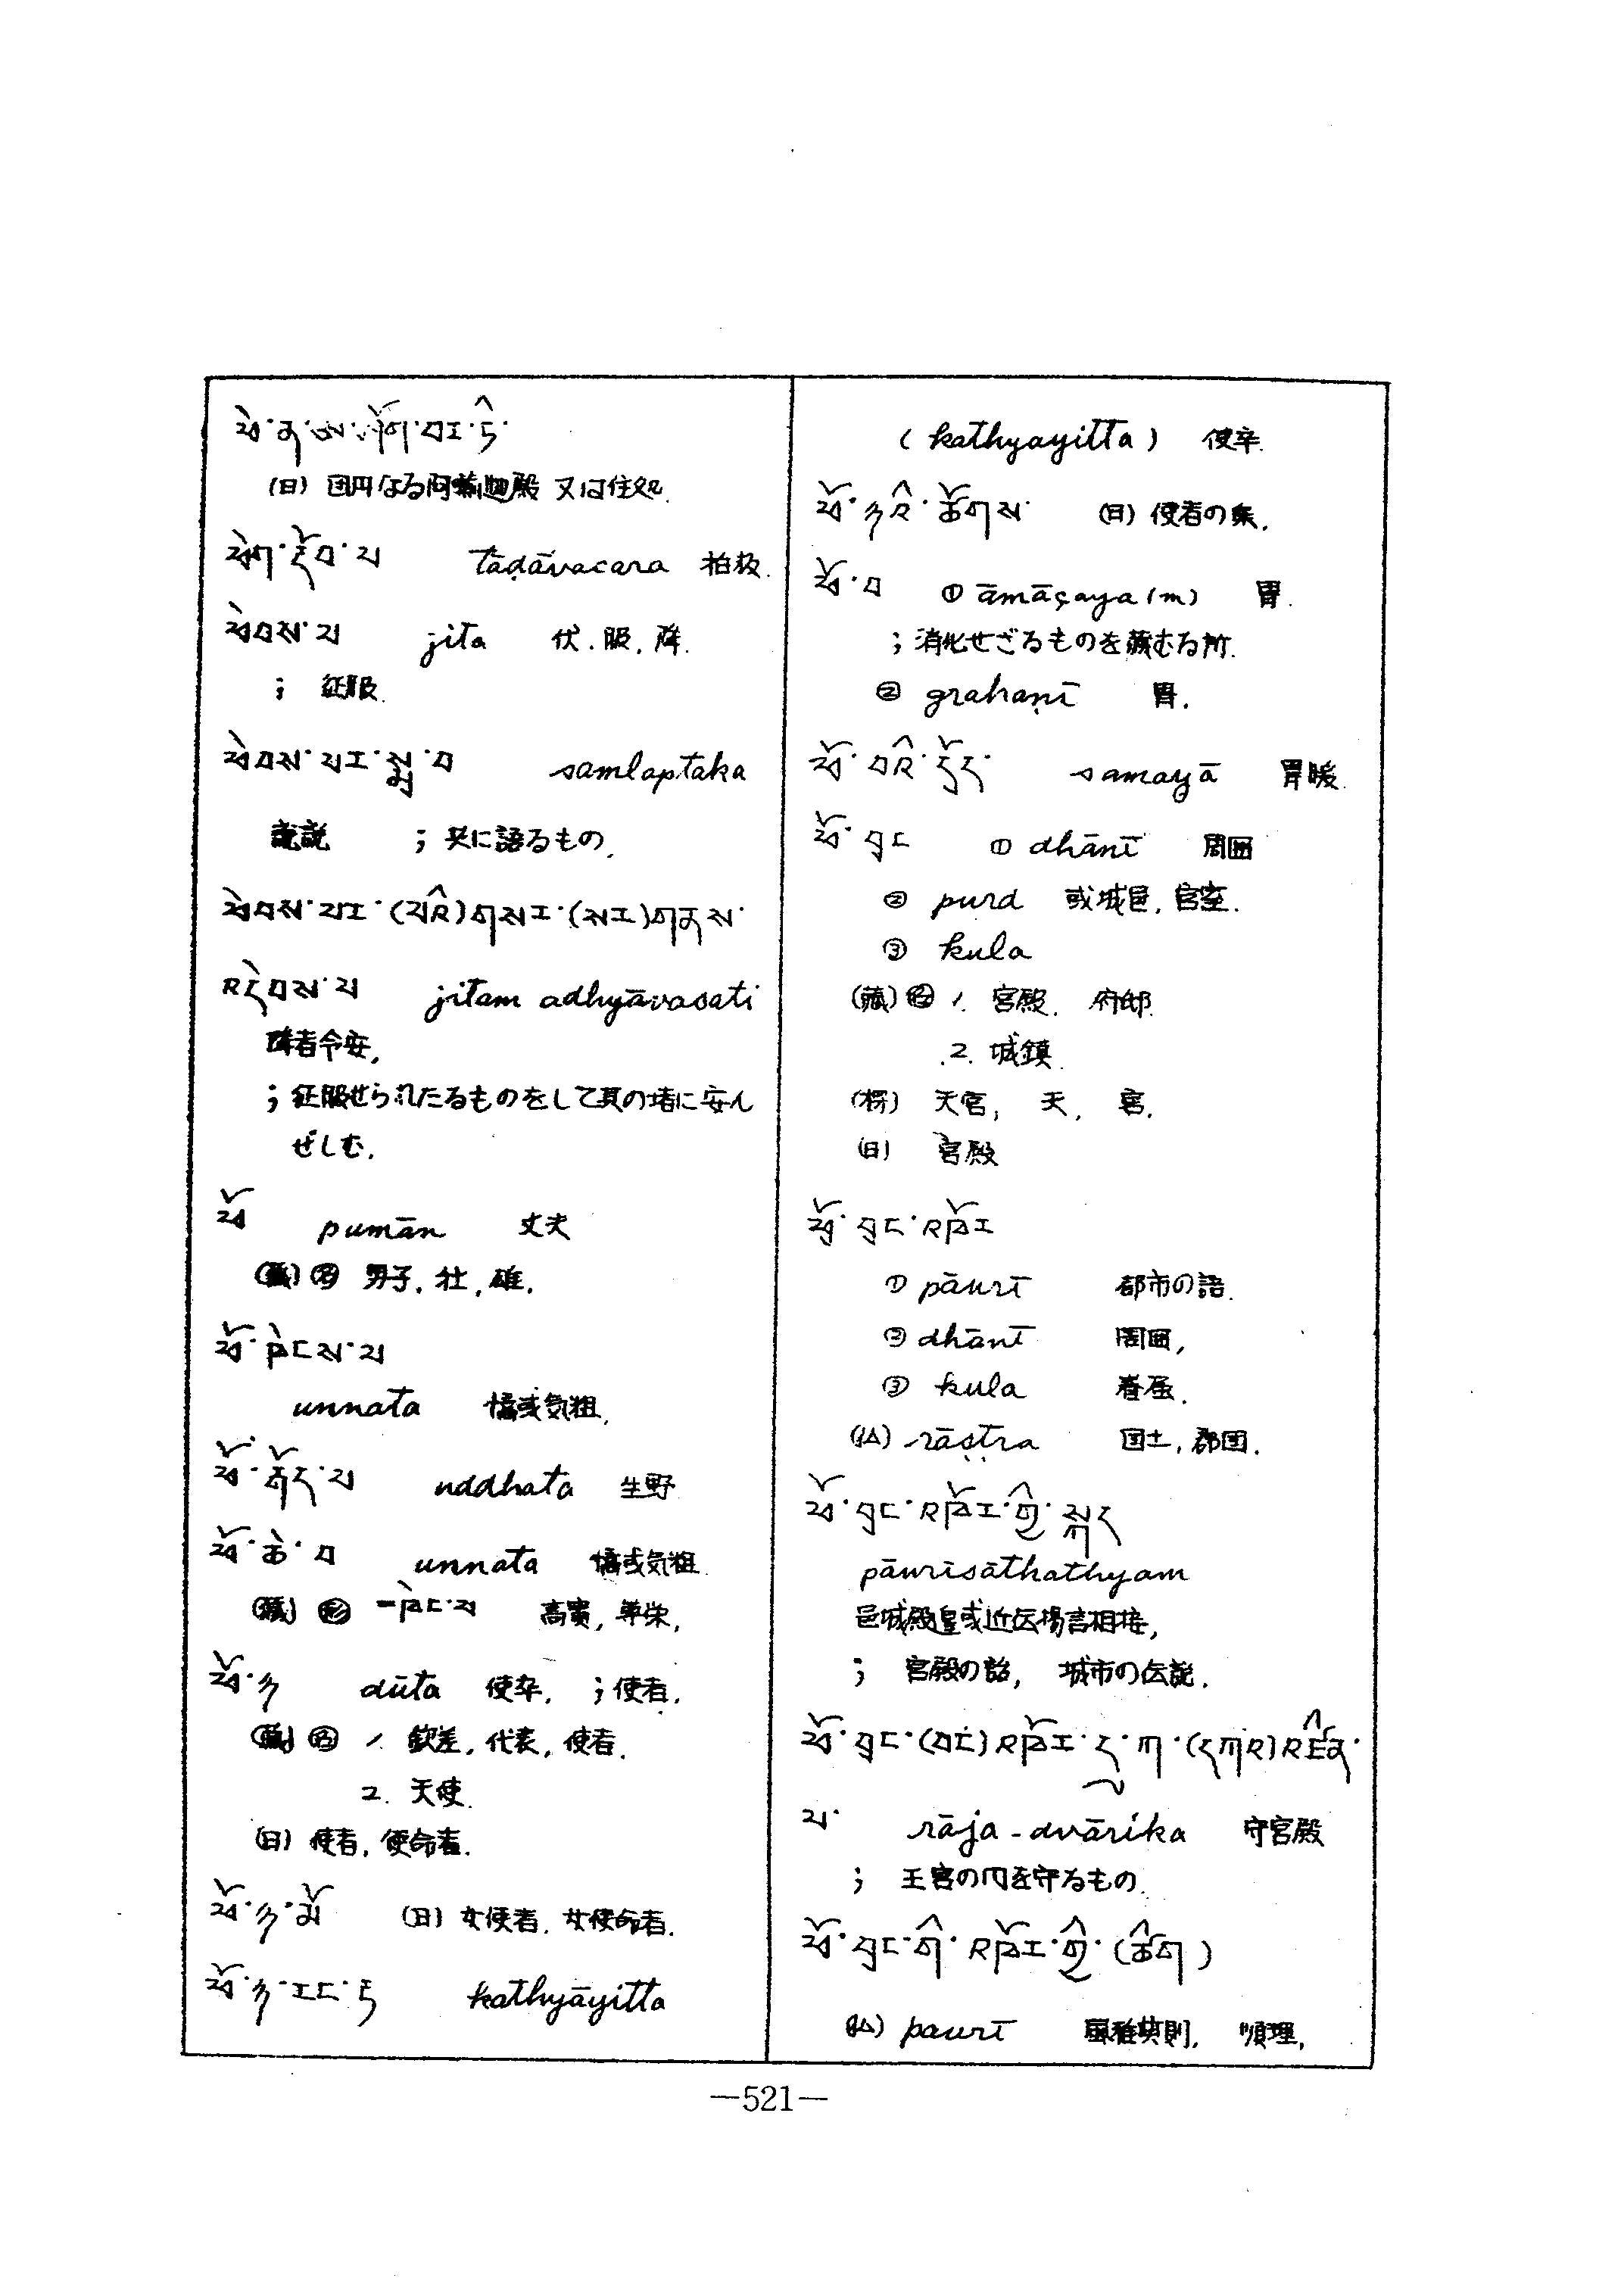 (日) 団円なる阿蘭迦殿 又は住処.
tāḍāvacara 拍板.
ཕེབས་པ jita 伏.服.降.
; 征服.
ཕེབས་པར་སྨྲ་བ samlaptaka
; 共に語るもの.
ཕེབས་པར་(པའི)གསར་(སར)གནས་
འདེབས་པ jitam adhyāvasati
降者令安.
; 征服せられたるものをして其の堵に安ん
ぜしむ.
ཕོ pumān 丈夫
(蔵) 名 男子, 壮, 雄.
ཕོ་ཤེངས་པ
unnata 憍或気粗.
ཕོ་ཤོད་པ uddhata 生野
ཕོ་ཚེ་བ unnata 憍或気粗.
(蔵) 形 高貴, 尊栄,
ཕོ་ཉ dūta 使卒, ; 使者.
(蔵) 名 1. 欽差, 代表, 使者.
2. 天使.
(日) 使者, 使命者.
ཕོ་ཉ་མོ (日) 女使者, 女使命者.
ཕོ་ཉ་རང་ཏེ kathyāyitta
(kathyayitta) 使卒.
ཕོ་ཉའི་ཚོགས་ (日) 使者の集.
ཕོ་བ ① āmāçaya (m) 胃.
; 消化せざるものを蔵むる所.
② grahaṇī 胃.
ཕོ་བའི་དྲོད་ samayā 胃暖.
ཕོ་བྲང ① dhānī 周囲
② purd 或城邑, 宮室.
③ kula
(蔵) 名 1. 宮殿. 府邸.
2. 城鎮.
(楞) 天宮, 天, 宮.
(日) 宮殿
ཕོ་བྲང་འཁོར
① pāurī 都市の語.
② dhānī 周囲,
③ kula 眷属.
(仏) rāṣṭra 国土, 郡国.
ཕོ་བྲང་འཁོར་གྱི་སྐད
pāurīsāthathyam
邑城殿皇或近伝揚言相接,
; 宮殿の話, 城市の伝説.
པ་ rāja-dvārika 守宮殿
; 王宮の門を守るもの.
ཕོ་བྲང་གི་འཁོར་གྱི་(ཚིག)
(仏) paurī 風雅典則, 順理,
—521—